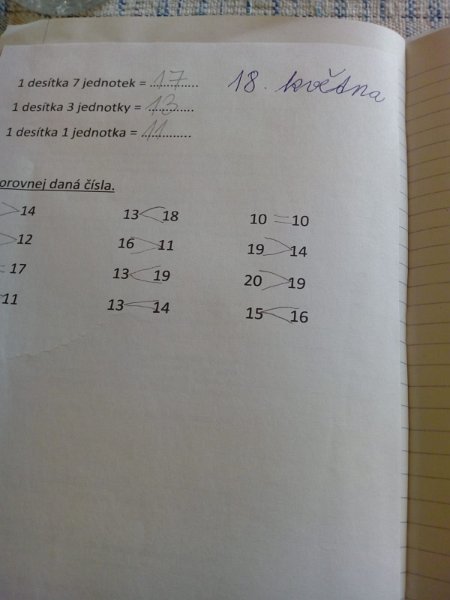 1 desítka 7 jednotek = ....17....
18. května
1 desítka 3 jednotky = ....13....
1 desítka 1 jednotka = ....11....
orovnej daná čísla.
> 14 13 < 18 10 = 10
> 12 16 > 11 19 > 14
= 17 13 < 19 20 > 19
11 13 < 14 15 < 16